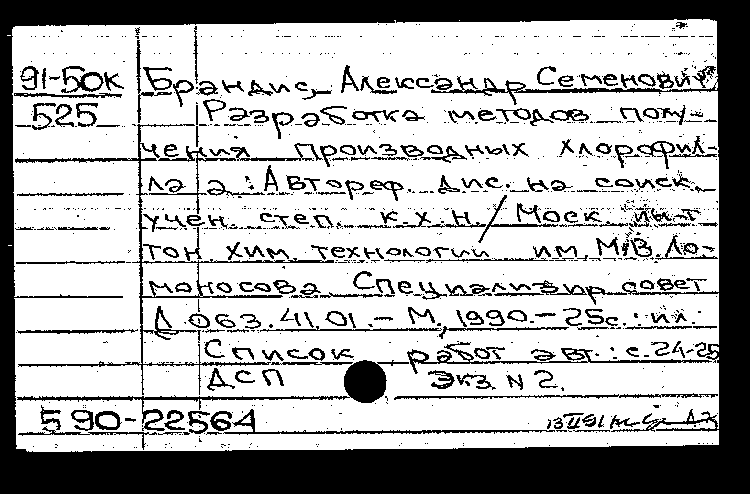 91-50к Брандис, Александр Семенович
525 Разработка методов полу-
чения производных хлорофил-
ла а : Автореф. дис. на соиск.
учен. степ. к.х.н. / Моск. ин-т
тон. хим. технологии им. М.В. Ло-
моносова. Специализир совет
Д 063.41.01. - М, 1990. - 25с. : ил.
Список работ авт. : с. 24-25
ДСП Экз. N 2.
590-22564